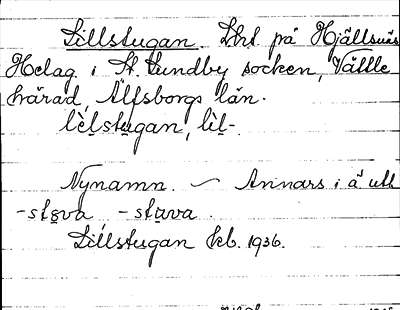 Lillstugan. Lht på Hjällsnäs
Helag. i St. Lundby socken, Vättle
härad, Älfsborgs län.
lèlstugan, lìl-.
Nynamn. – Annars i ä. utt.
-støva -stuva.
Lillstugan Kb. 1936.